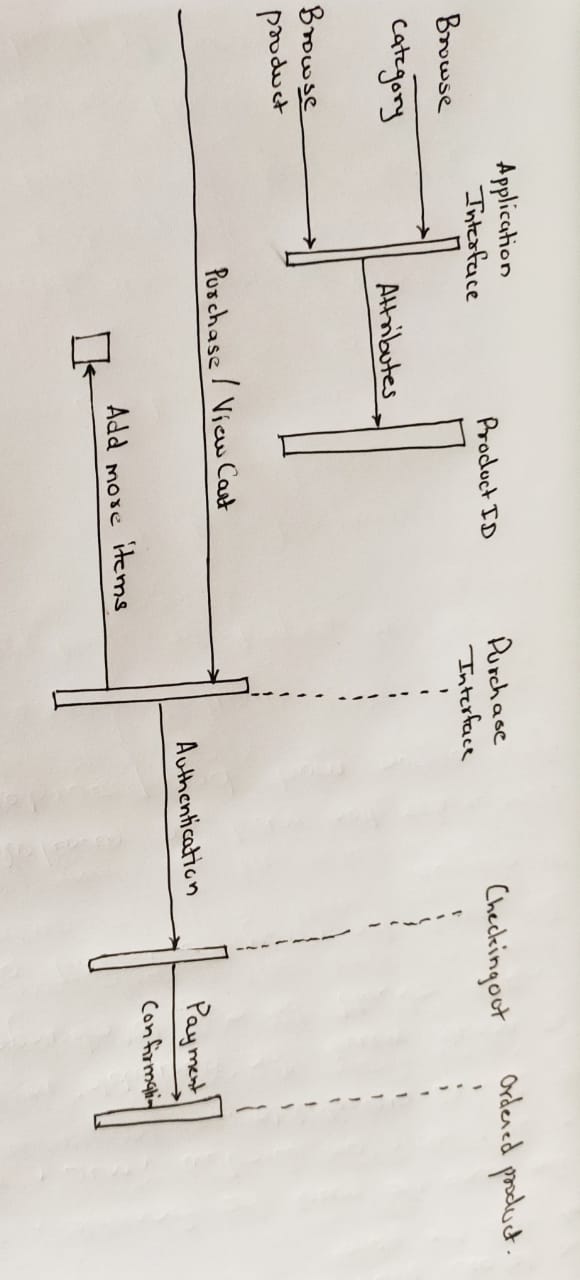 Application
Interface
Product ID
Purchase
Interface
Checkingout
Ordered product.
Browse
category
Attributes
Browse
product
Purchase / View Cart
Authentication
Payment
Confirmation
Add more items